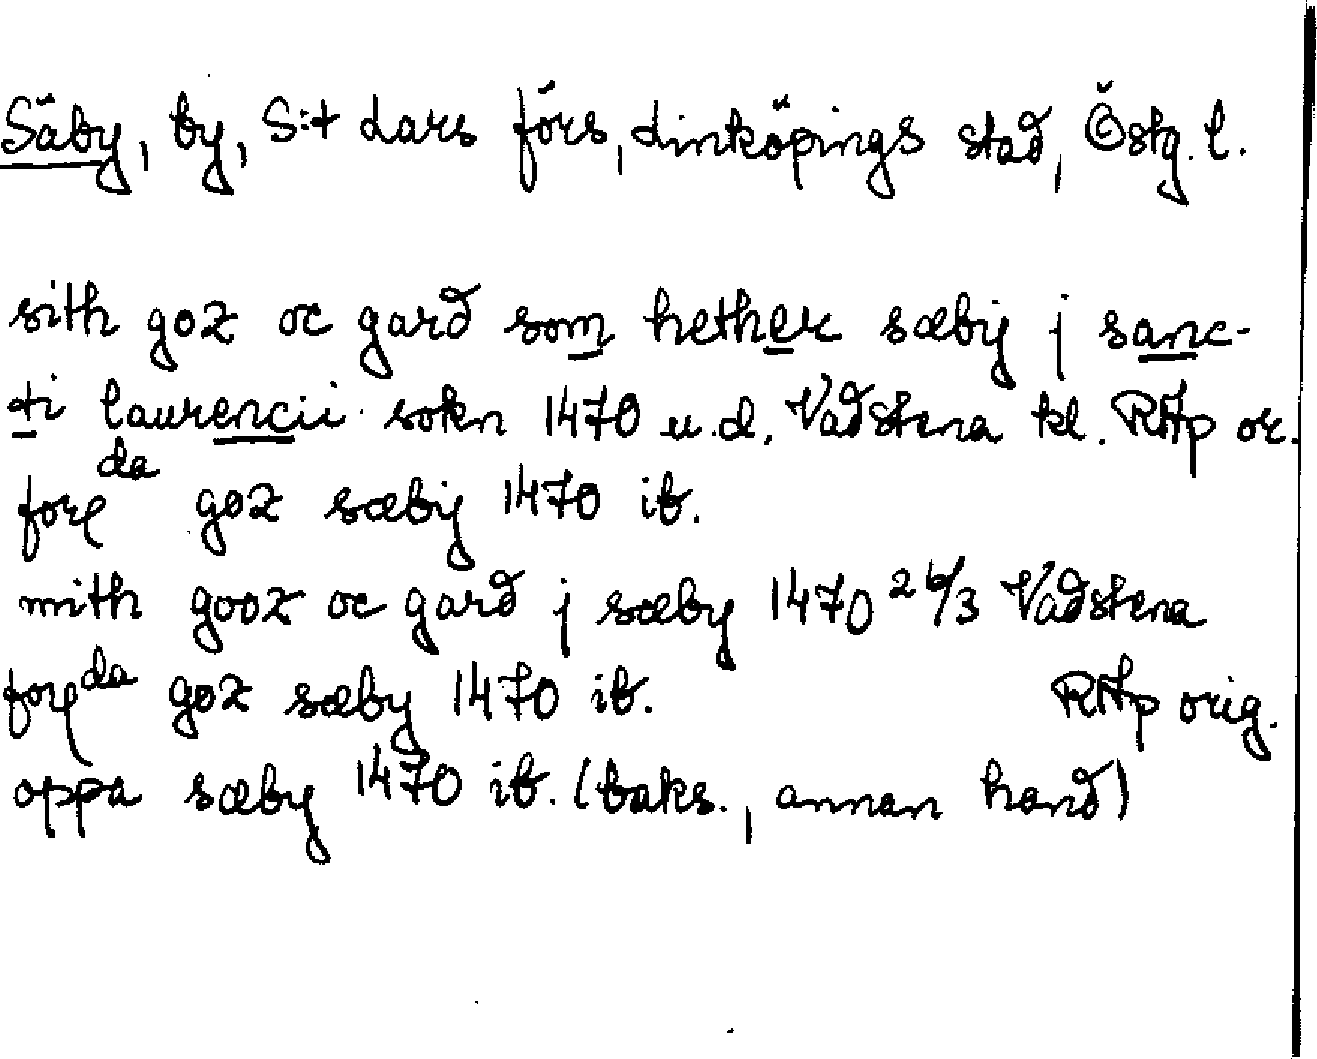 Säby, by, S:t Lars förs, Linköpings stad, Östg. l.
sith goz oc gard som hether sæbÿ j sanc-
ti laurencii sokn 1470 u.d. Vadstena kl. RAp or.
foreda goz sæbÿ 1470 ib.
mith gooz oc gard j sæby 1470 26/3 Vadstena
foreda goz sæby 1470 ib. RAp orig.
oppa sæby 1470 ib. (baks., annan hand)